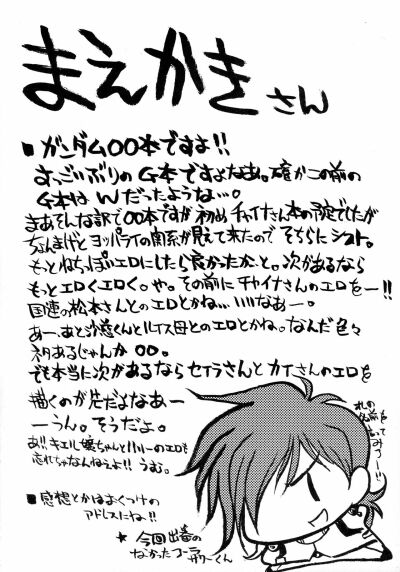 まえかきさん
■ガンダム00本ですよ!!
すっごいぶりのG本ですよなあ。確かこの前の
G本はWだったような…。
まあそんな訳で00本ですが初め、チャイナさん本の予定でしたが
ちょんまげとヨッパライの関係が見えて来たのでそちらにシフト。
もっとねちっぽいエロにしたら良かったかーと。次があるなら
もっとエロくエロく。や。その前にチャイナさんのエロをー!!
国連の松本さんとのエロとかね…いいなあー。
あー、あと沙慈くんとルイス母とのエロとかね。なんだ色々
ネタあるじゃんか00。
でも本当に次があるならセイラさんとカイさんのエロを
描くのが先だよなあー
ーうん。そうだよ。
あ!!キエル嬢ちゃんとハリーのエロも
忘れちゃなんねえよ!!うむ。
■感想とかはおくつけの
アドレスにね!!
★今回出番の
なかったコーラ
サワーくん
オレの
名前を
言って
みろー!!